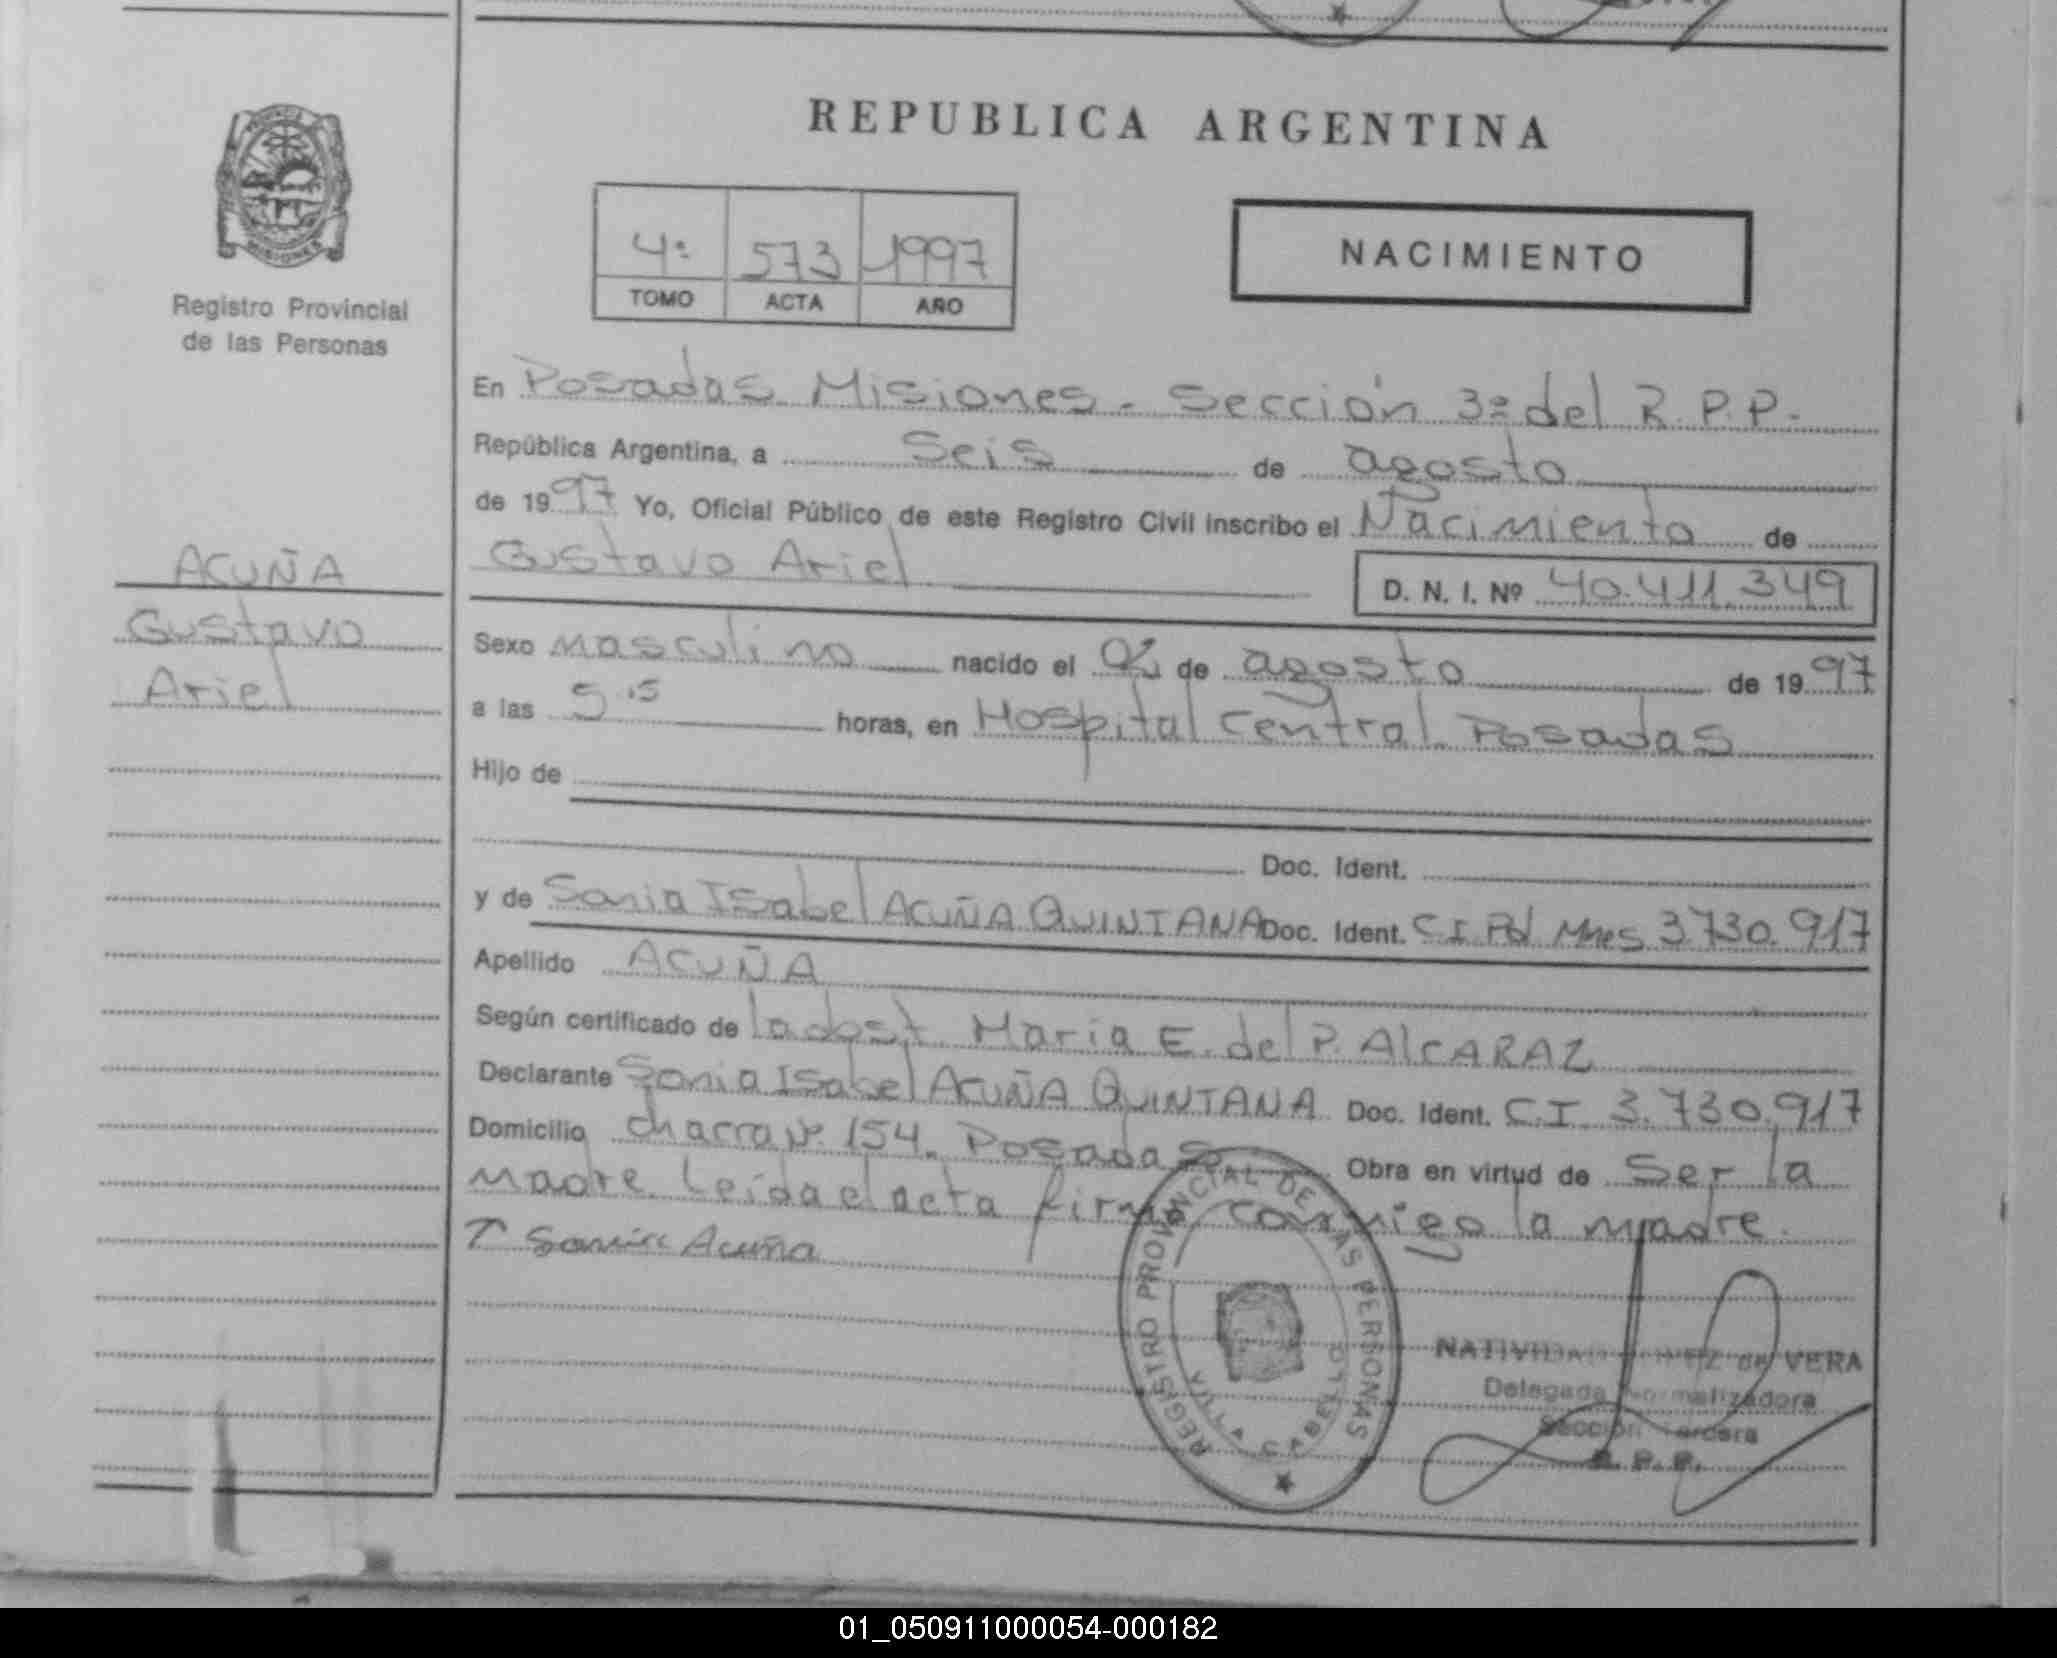 REPUBLICA ARGENTINA
PROVINCIA
MISIONES
Registro Provincial
de las Personas
4º 573 1997
TOMO ACTA AÑO
NACIMIENTO
En Posadas Misiones - Sección 3º del R.P.P.
República Argentina, a Seis de agosto
de 1997 Yo, Oficial Público de este Registro Civil inscribo el Nacimiento de
Gustavo Ariel D. N. I. Nº 40.411.349
ACUÑA
Gustavo
Ariel
Sexo masculino nacido el 02 de agosto de 1997
a las 5.15 horas, en Hospital Central Posadas
Hijo de
Doc. Ident.
y de Sonia Isabel ACUÑA QUINTANA Doc. Ident. C I Pol Mnes 3730.917
Apellido ACUÑA
Según certificado de la obst María E. del P. AlCARAZ
Declarante Sonia Isabel ACUÑA QUINTANA Doc. Ident. C.I 3.730.917
Domicilio chacra Nº 154. Posadas Obra en virtud de Ser la
madre. Leída el acta firma conmigo la madre.
Sonia Acuña
REGISTRO PROVINCIAL DE LAS PERSONAS
VILLA CABELLO
NATIVIDAD de VERA
Delegada Normalizadora
Sección Tercera
R. P. P.
01_050911000054-000182